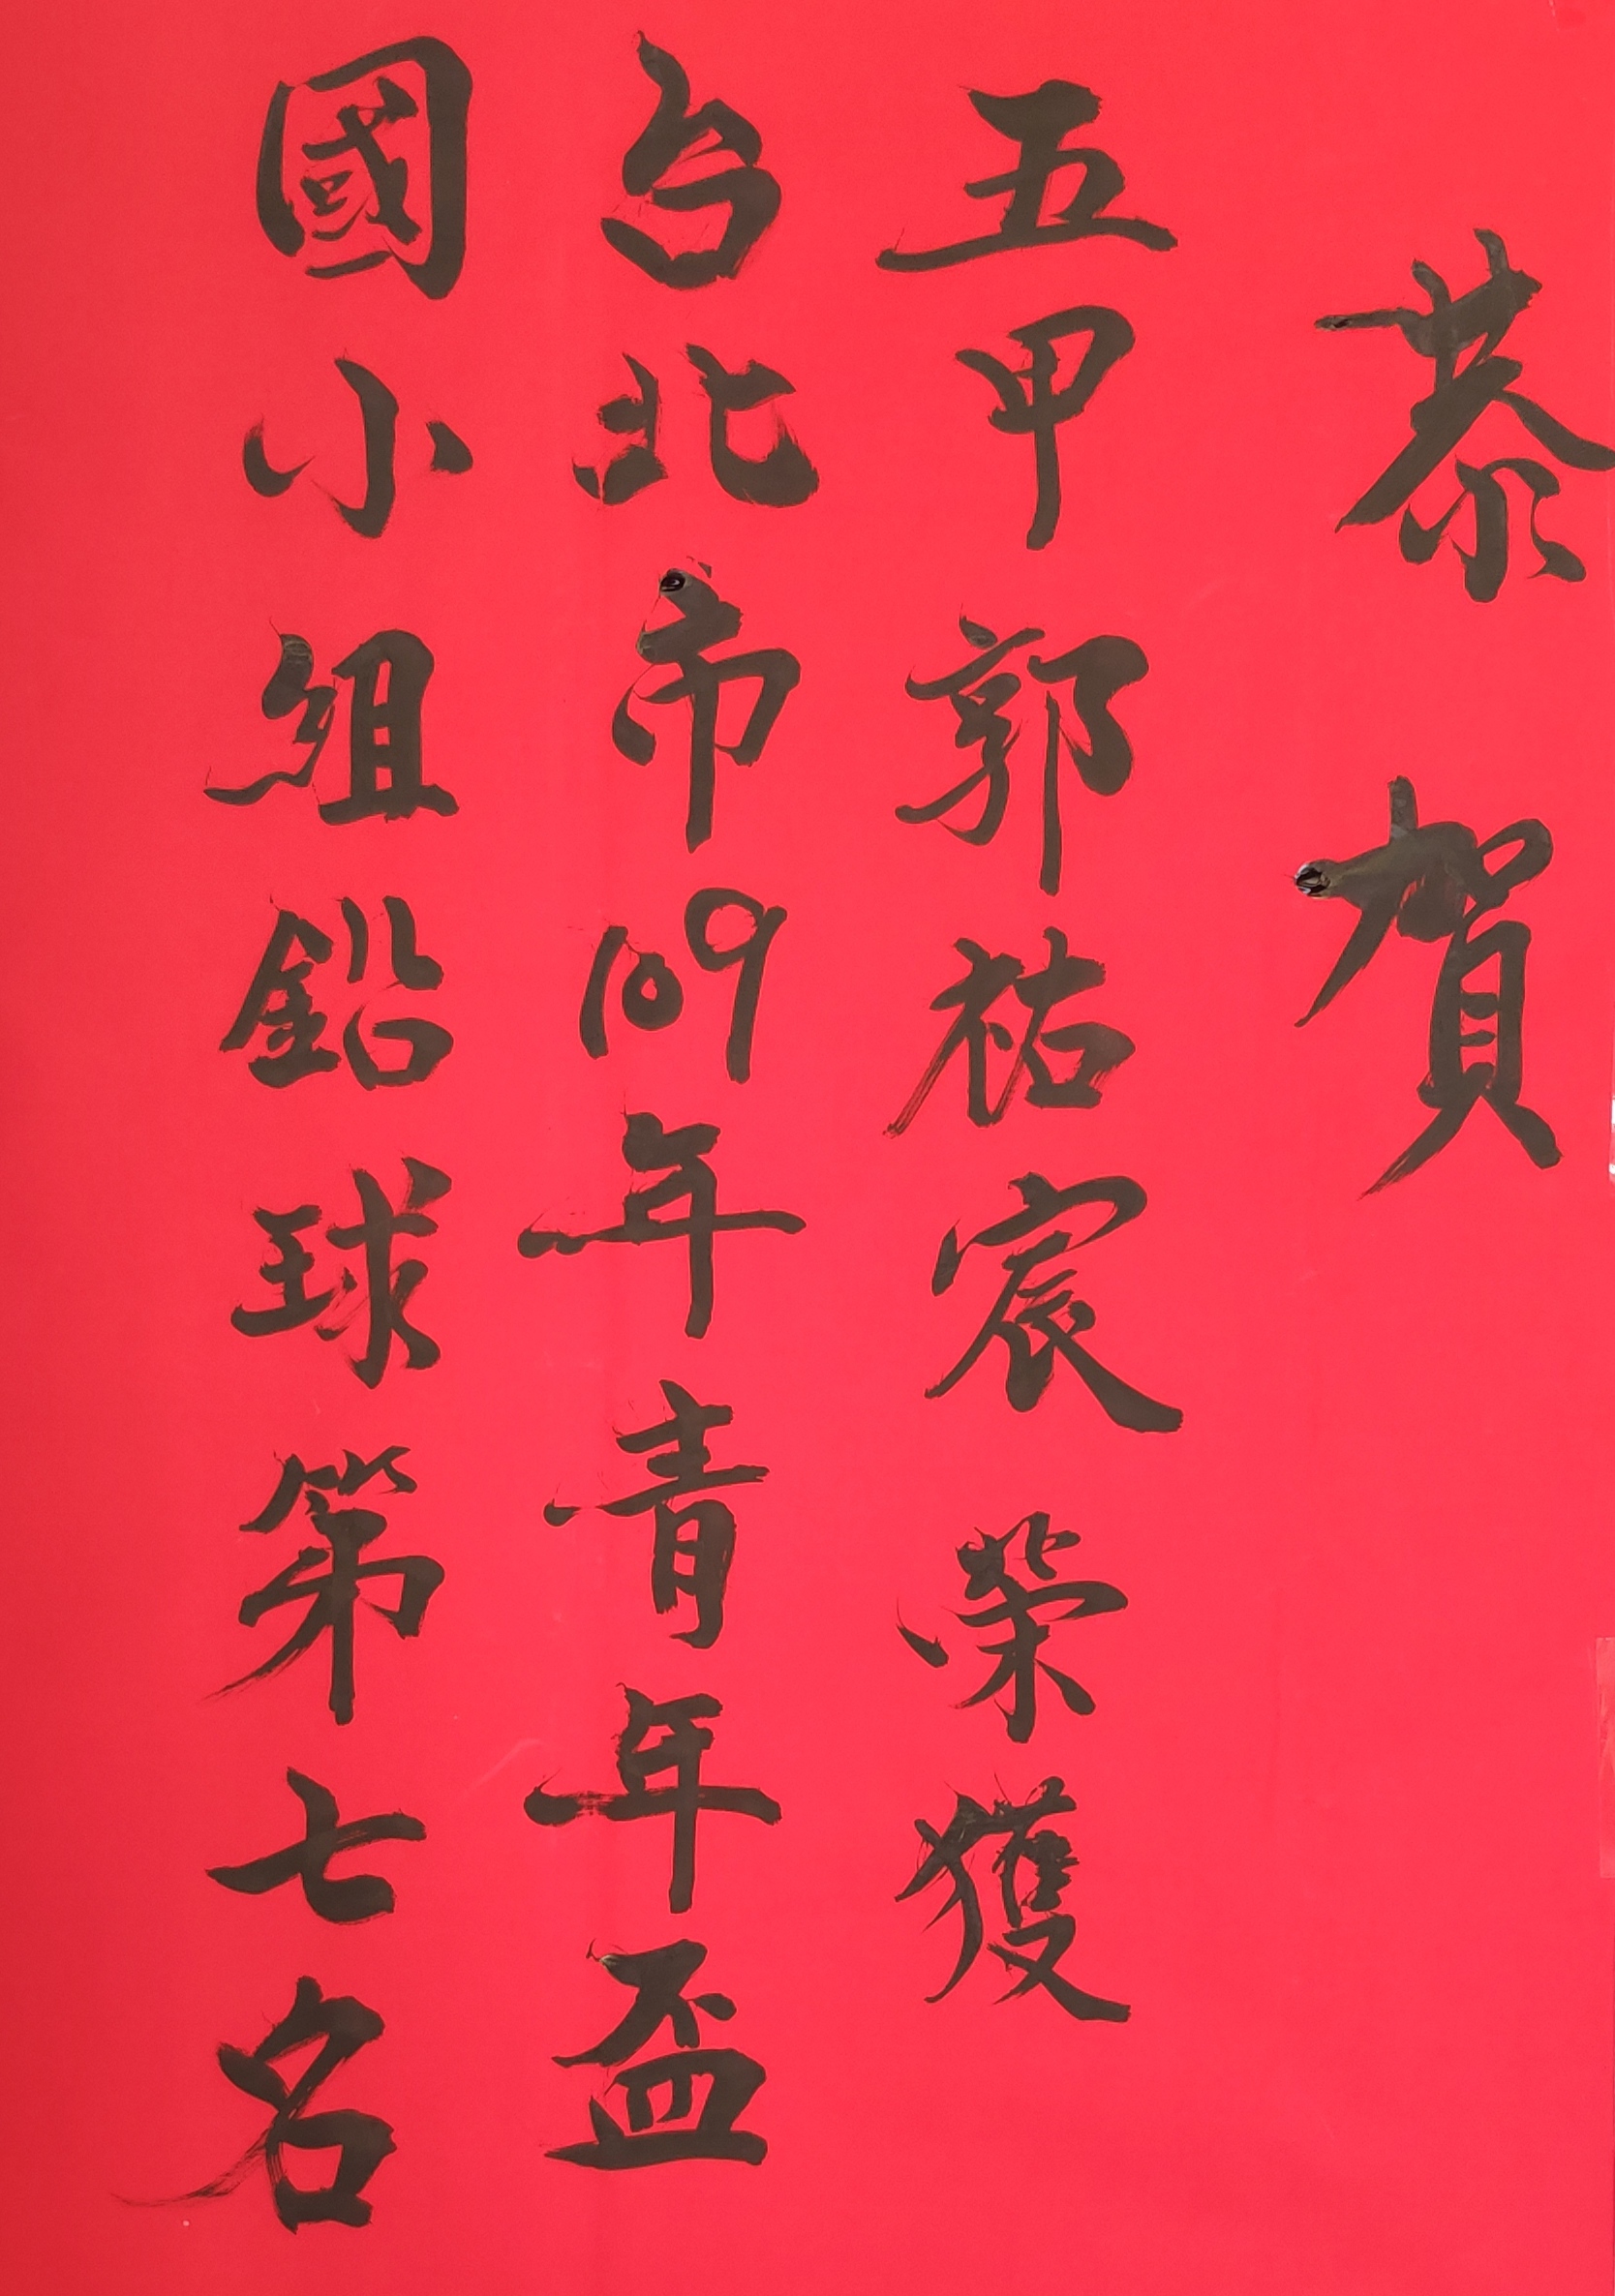 恭賀
五甲郭祐宸 榮獲
台北市109年青年盃
國小組鉛球第七名